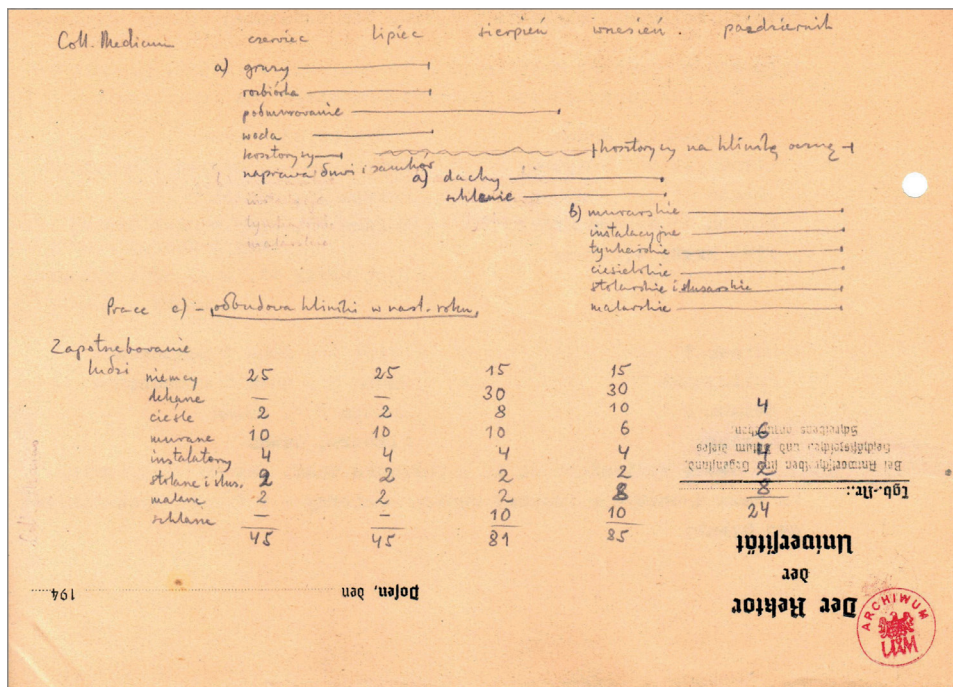 Coll. Medicum czerwiec lipiec sierpień wrzesień. październik
a) gruzy
rozbiórka
podmurowanie
woda
kosztorysy kosztorysy na klinikę oczną
naprawa drzwi i zamków a) dachy
szklenie
b) murarskie
instalacyjne
tynkarskie
ciesielskie
stolarskie i ślusarskie
malarskie
Prace c) - odbudowa kliniki w nast. roku,
Zapotrzebowanie
ludzi
niemcy 25 25 15 15
dekarze — — 30 30
cieśle 2 2 8 10 4
murarze 10 10 10 6 6
instalatorzy 4 4 4 4 4
stolarze i ślus. 2 2 2 2 2
malarze 2 2 2 8 8
szklarze — — 10 10
45 45 81 85 24
Der Rektor
der
Universität
Posen, den 194
Tgb.-Nr.:
Bei Antwortschreiben sind Gegenstand,
Geschäftszeichen und Datum dieses
Schreibens anzugeben.
ARCHIWUM
UAM